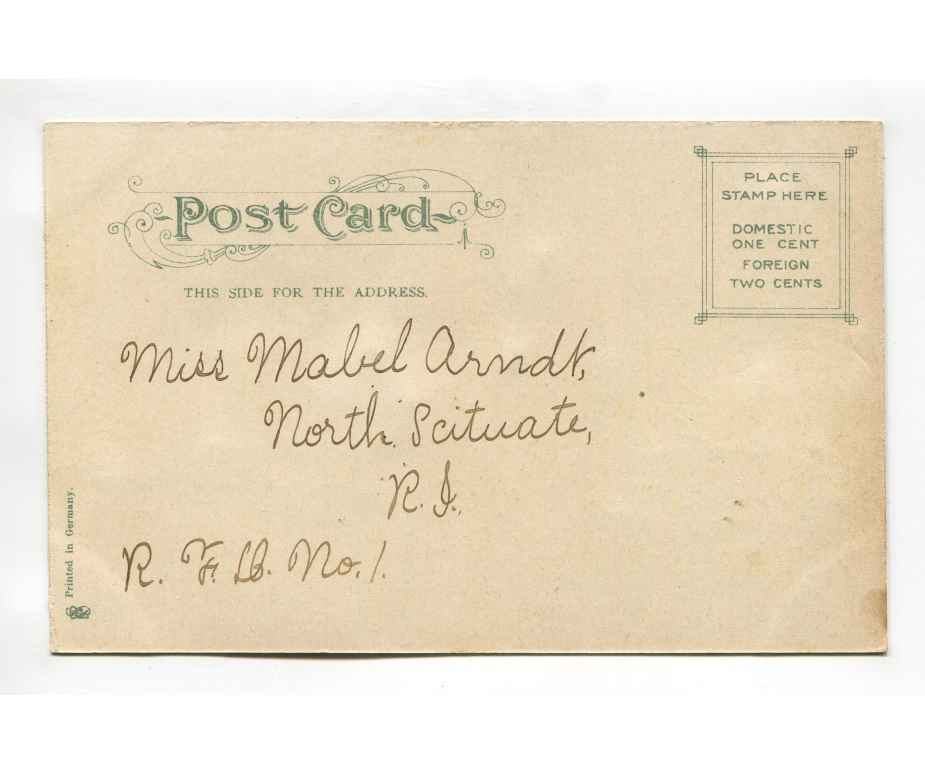 Post Card
THIS SIDE FOR THE ADDRESS.
PLACE
STAMP HERE
DOMESTIC
ONE CENT
FOREIGN
TWO CENTS
Miss Mabel Arndt,
North Scituate,
R.I.,
R. F. D. No. 1.
Printed in Germany.